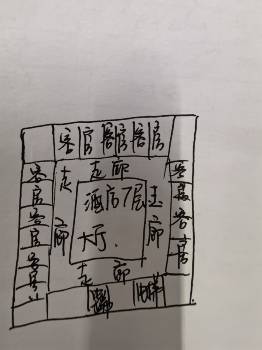 客房客房客房
走廊
客房客房客房
走廊
酒店7层
大厅.
走廊
客房客房
走廊